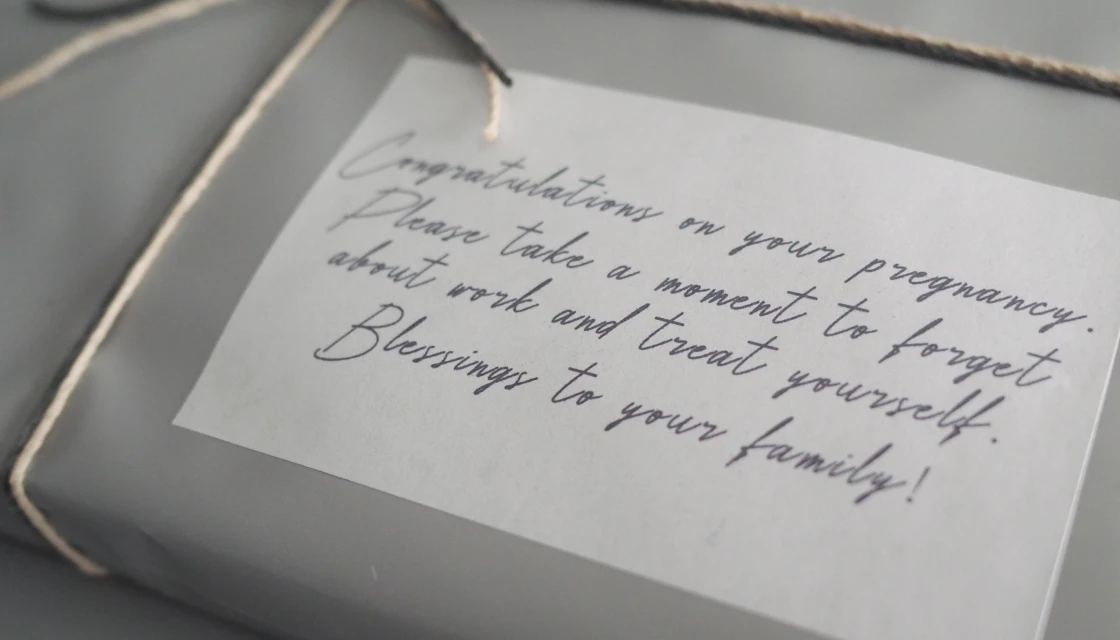 Congratulations on your pregnancy.
Please take a moment to forget
about work and treat yourself.
Blessings to your family!